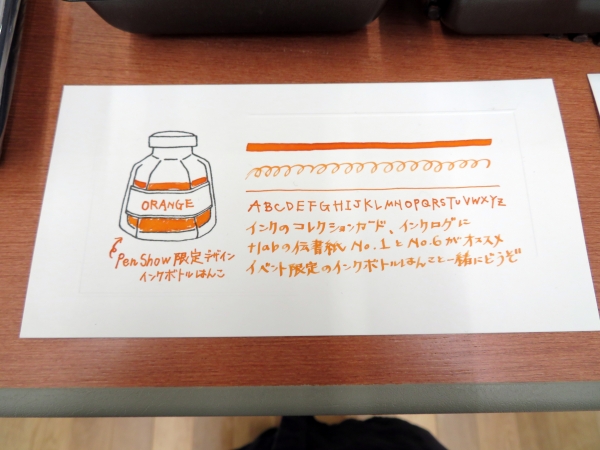 ORANGE
Pen Show 限定デザイン
インクボトルはんこ
ABCDEFGHIJKLMNOPQRSTUVWXYZ
インクのコレクションカード、インクログに
+labの伝書紙 No.1とNo.6がオススメ
イベント限定のインクボトルはんこと一緒にどうぞ